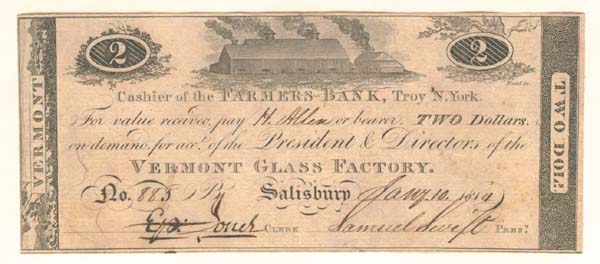 2 2
Cashier of the FARMERS-BANK, Troy N. York.
For value received, pay H. Allen or bearer TWO Dollars
on demand, for acct. of the President & Directors of the
VERMONT GLASS FACTORY.
No. 885 Salisbury Jany. 10. 1814
CLERK Samuel Swift PREST.
VERMONT
TWO DOL.